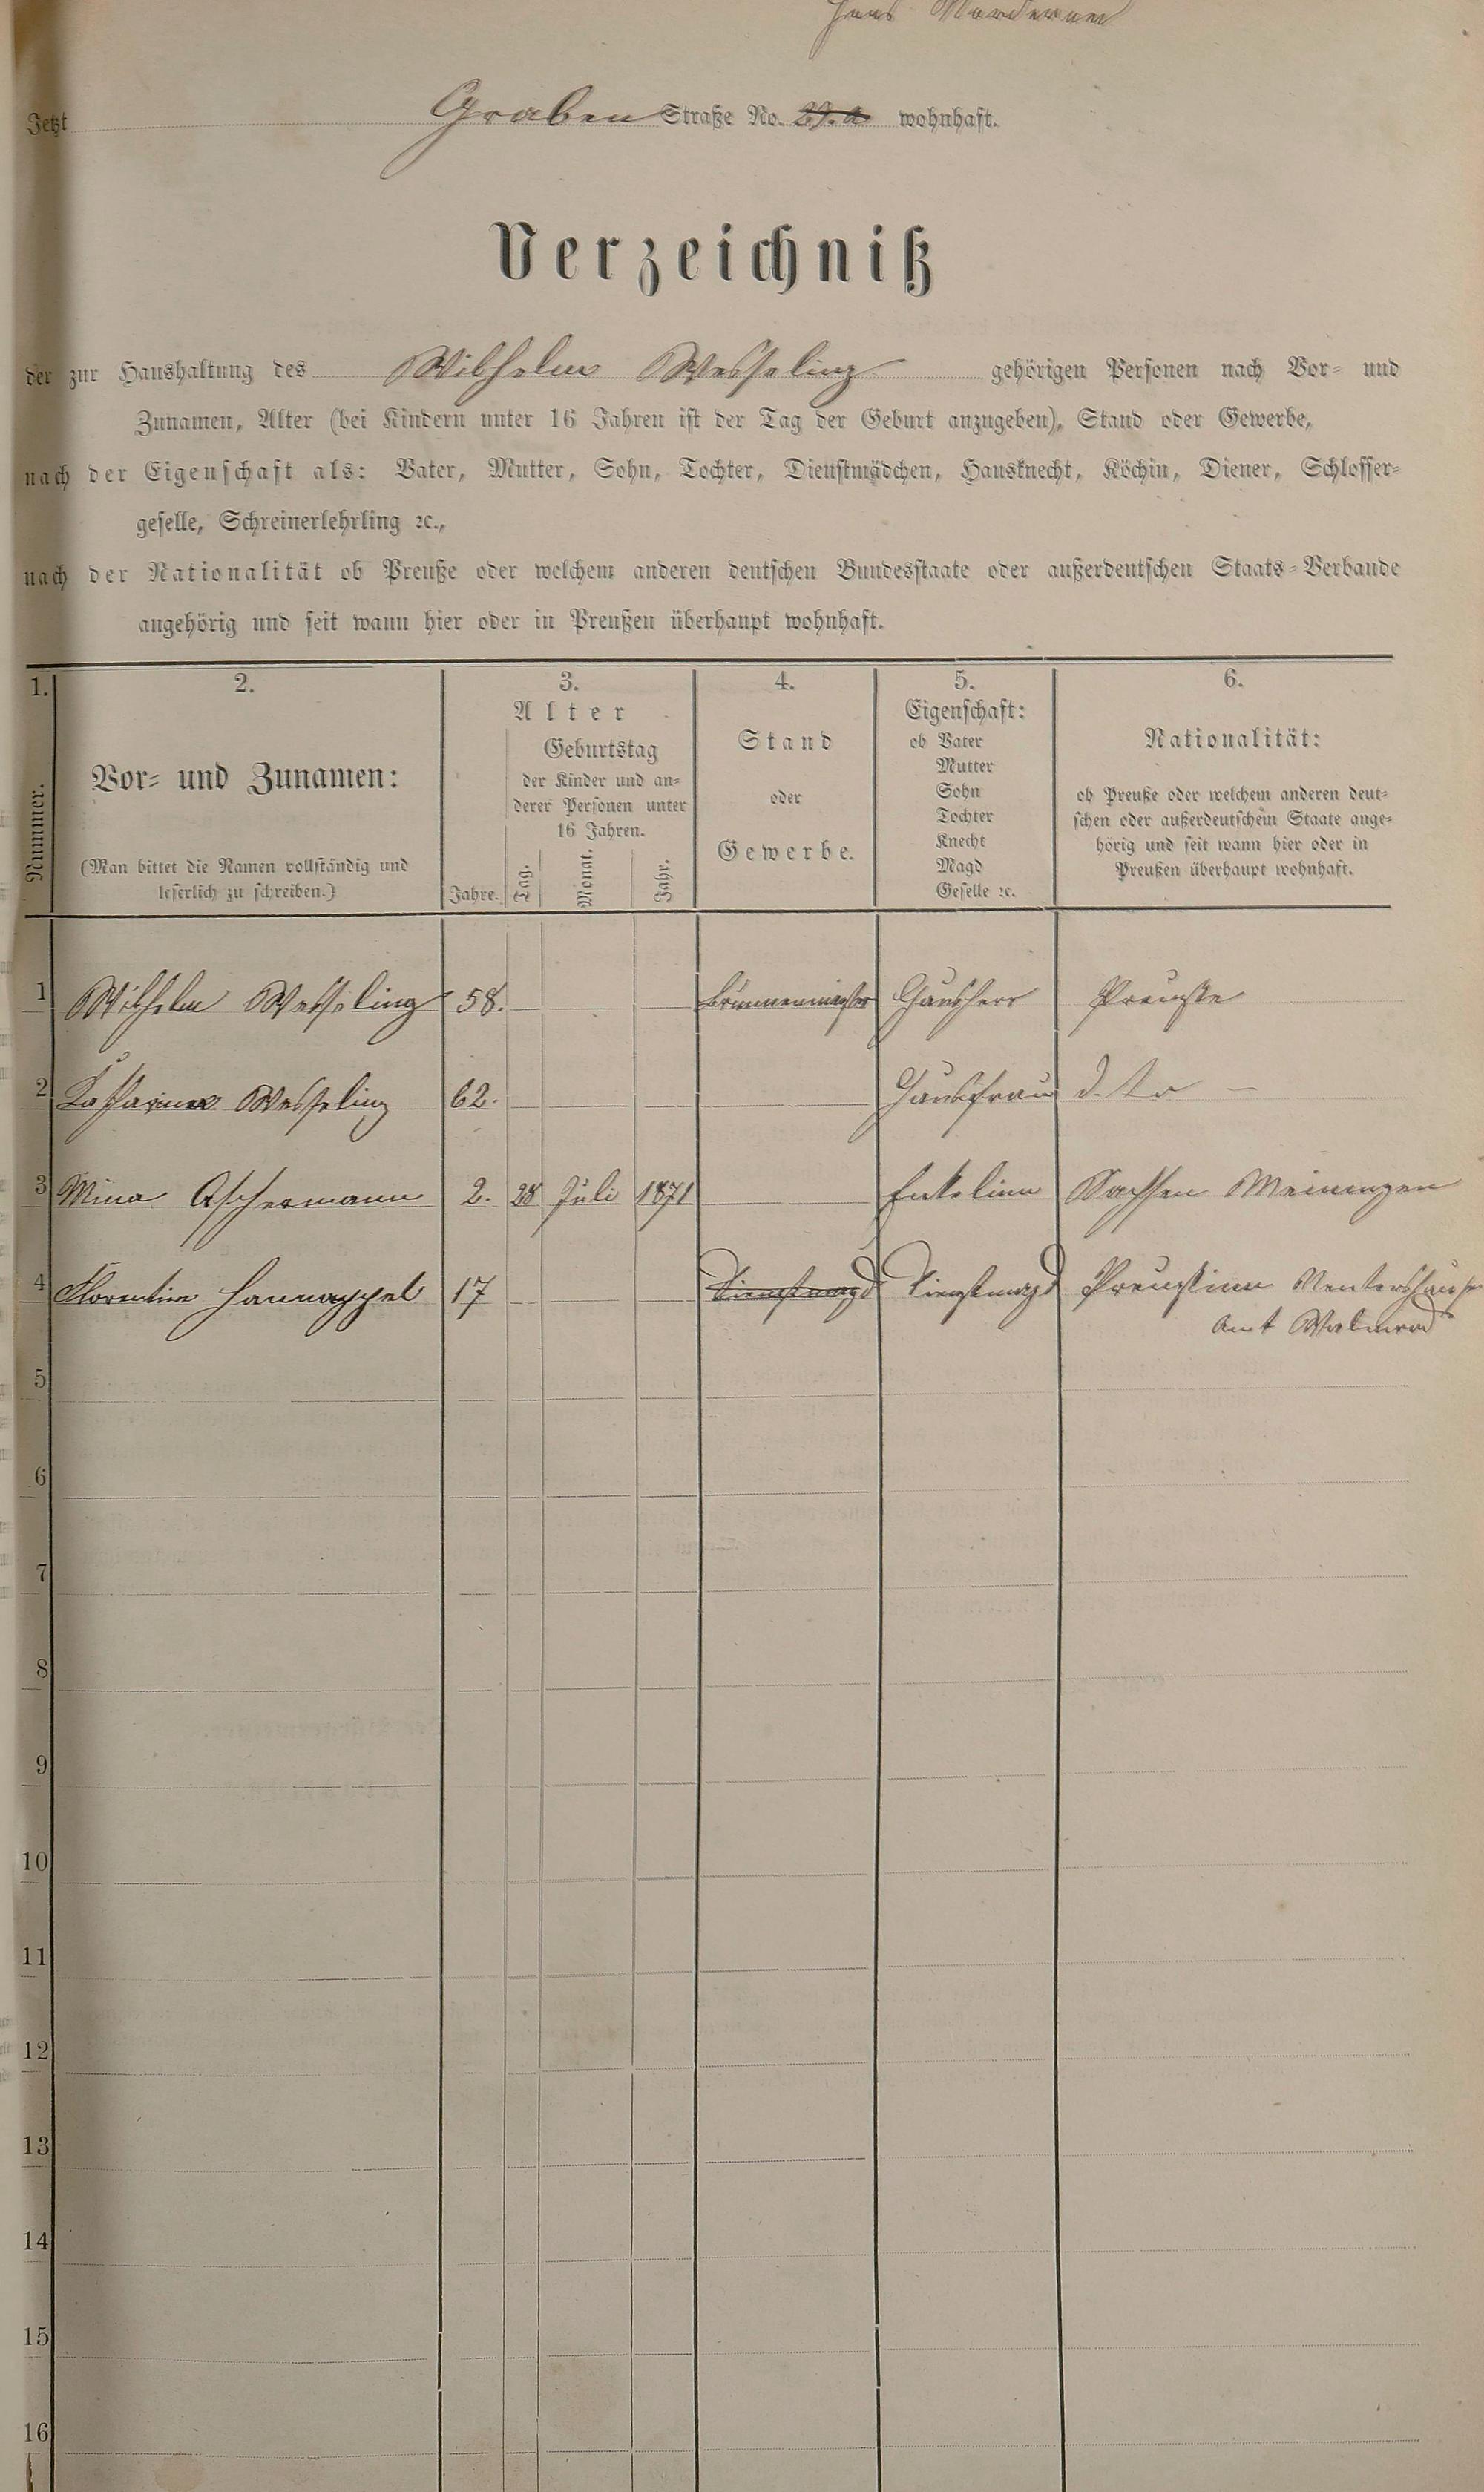 Haus Norderney
Jetzt Graben Straße No. 29.a wohnhaft.
Verzeichniß
der zur Haushaltung des Wilhelm Wesseling gehörigen Personen nach Vor- und
Zunamen, Alter (bei Kindern unter 16 Jahren ist der Tag der Geburt anzugeben), Stand oder Gewerbe,
nach der Eigenschaft als: Vater, Mutter, Sohn, Tochter, Dienstmädchen, Hausknecht, Köchin, Diener, Schlosser-
geselle, Schreinerlehrling ꝛc.,
nach der Nationalität ob Preuße oder welchem anderen deutschen Bundesstaate oder außerdeutschen Staats-Verbande
angehörig und seit wann hier oder in Preußen überhaupt wohnhaft.
1. 2. 3. 4. 5. 6.
Nummer.
Vor- und Zunamen:
(Man bittet die Namen vollständig und
leserlich zu schreiben.)
Alter
Jahre.
Geburtstag
der Kinder und an-
derer Personen unter
16 Jahren.
Tag. Monat. Jahr.
Stand
oder
Gewerbe.
Eigenschaft:
ob Vater
Mutter
Sohn
Tochter
Knecht
Magd
Geselle ꝛc.
Nationalität:
ob Preuße oder welchem anderen deut-
schen oder außerdeutschem Staate ange-
hörig und seit wann hier oder in
Preußen überhaupt wohnhaft.
1 Wilhelm Wesseling 58. Brunnenmeister Hausherr Preuße
2 Katharina Wesseling 62. Hausfrau d. to –
3 Mina Aschermann 2. 28 Juli 1871 Enkelinn Sachsen Meiningen
4 Florentine Hannappel 17 Dienstmagd Dienstmagd Preußinn Mentershausen
Amt Walmrod
5
6
7
8
9
10
11
12
13
14
15
16